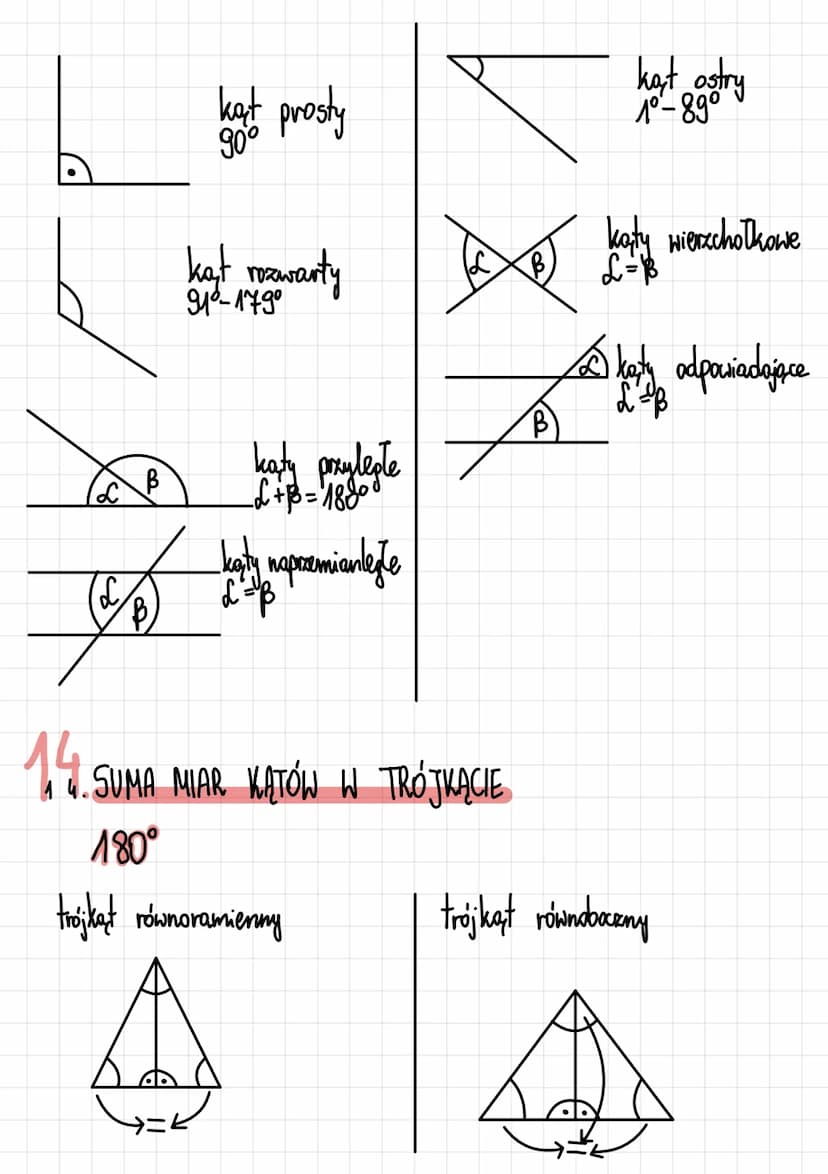 kąt prosty
90°
kąt rozwarty
91°-179°
α β
kąty przyległe
α+β=180°
kąty naprzemianległe
α=β
α
β
kąt ostry
1°-89°
kąty wierzchołkowe
α=β
α β
kąty odpowiadające
α=β
α
β
14. SUMA MIAR KĄTÓW W TRÓJKĄCIE
180°
trójkąt równoramienny
=
trójkąt równoboczny
=